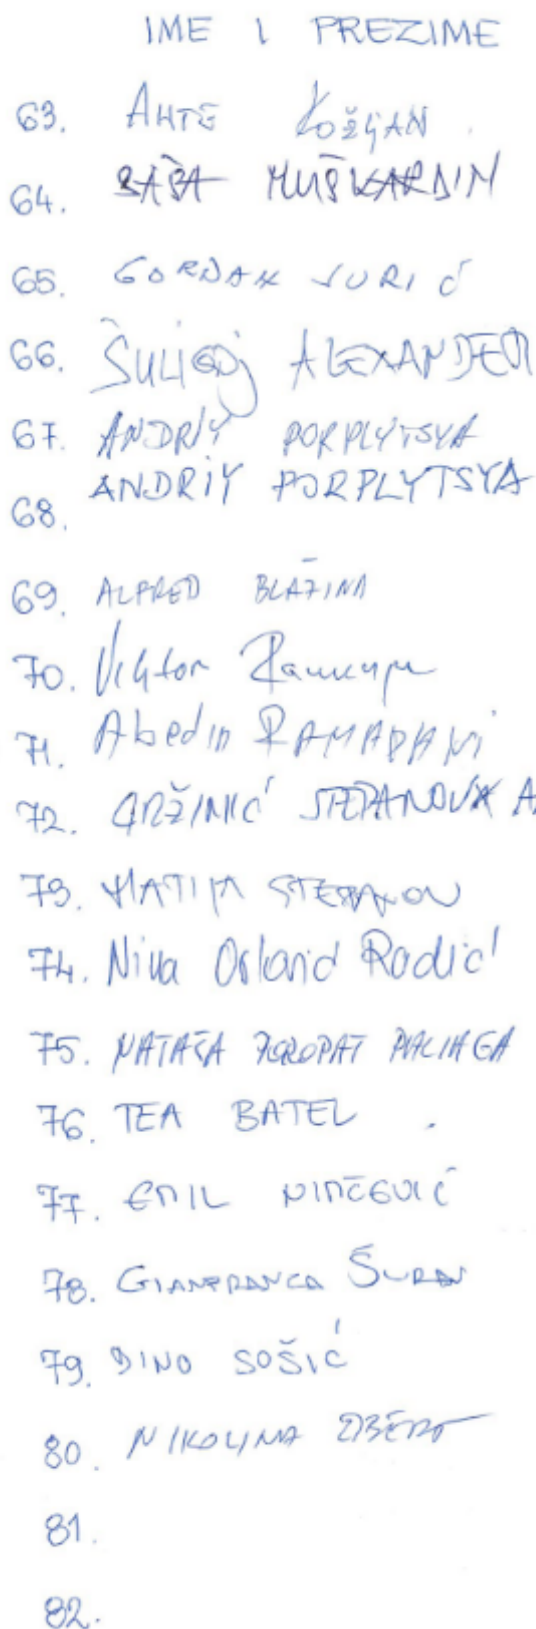 IME I PREZIME
63. ANTE KOŽLJAN
64. SAŠA MUŠKARDIN
65. GORDAN JURIĆ
66. ŠULIGOJ ALEXANDER
67. ANDRIY PORPLYTSYA
68. ANDRIY PORPLYTSYA
69. ALFRED BLAŽINA
70. Viktor
71. Abedin RAMADANI
72. GRŽINIĆ STEPANOVA
73. MATIJA STEPANOV
74. Nina Orlović Radić
75. NATAŠA ZOROPAT PALIAGA
76. TEA BATEL
77. EMIL NIMČEVIĆ
78. GIANFRANCA ŠURAN
79. DINO SOŠIĆ
80. NIKOLINA
81.
82.